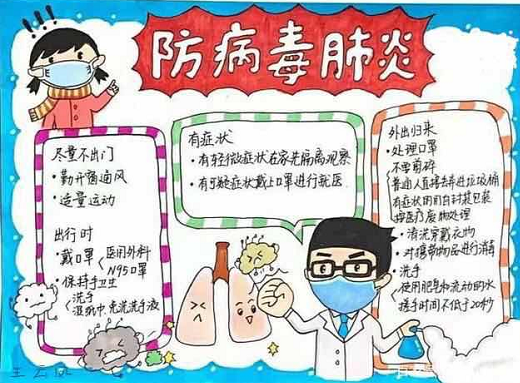 防病毒肺炎
尽量不出门
·勤开窗通风
·适量运动
出行时
·戴口罩 医用外科
N95口罩
·保持手卫生
洗手
免洗洗手液
有症状
·有轻微症状在家先隔离观察
·有可疑症状戴上口罩进行就医
外出归来
·处理口罩
不需剪碎
普通人直接丢弃进垃圾桶
有症状的用自封袋包装
按医疗废物处理
·清洗穿戴衣物
·对携带物品进行消毒
·洗手
使用肥皂和流动的水
搓手时间不低于20秒